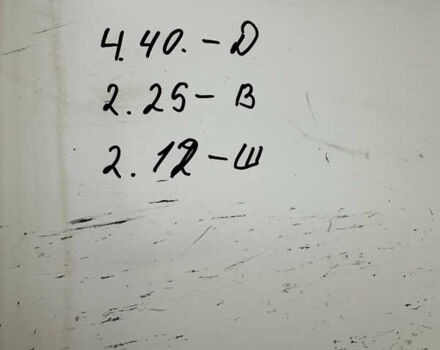 4.40. - D
2.25 - В
2.12 - Ш